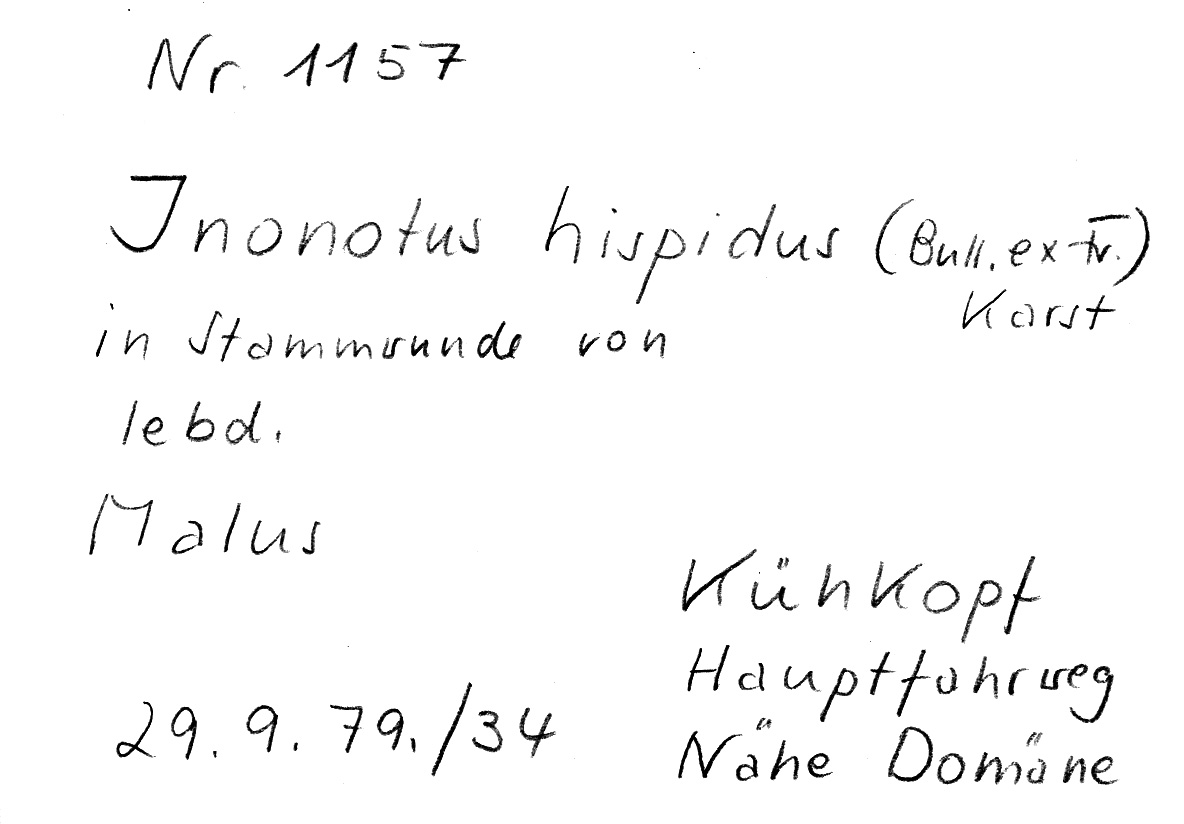 Nr. 1157
Inonotus hispidus (Bull. ex Fr.)
Karst
in Stammwunde von
lebd.
Malus
Kühkopf
Hauptfahrweg
Nähe Domäne
29. 9. 79./34